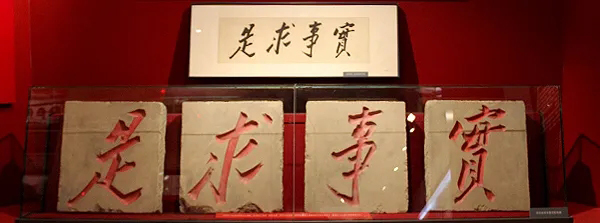 實事求是
實事求是